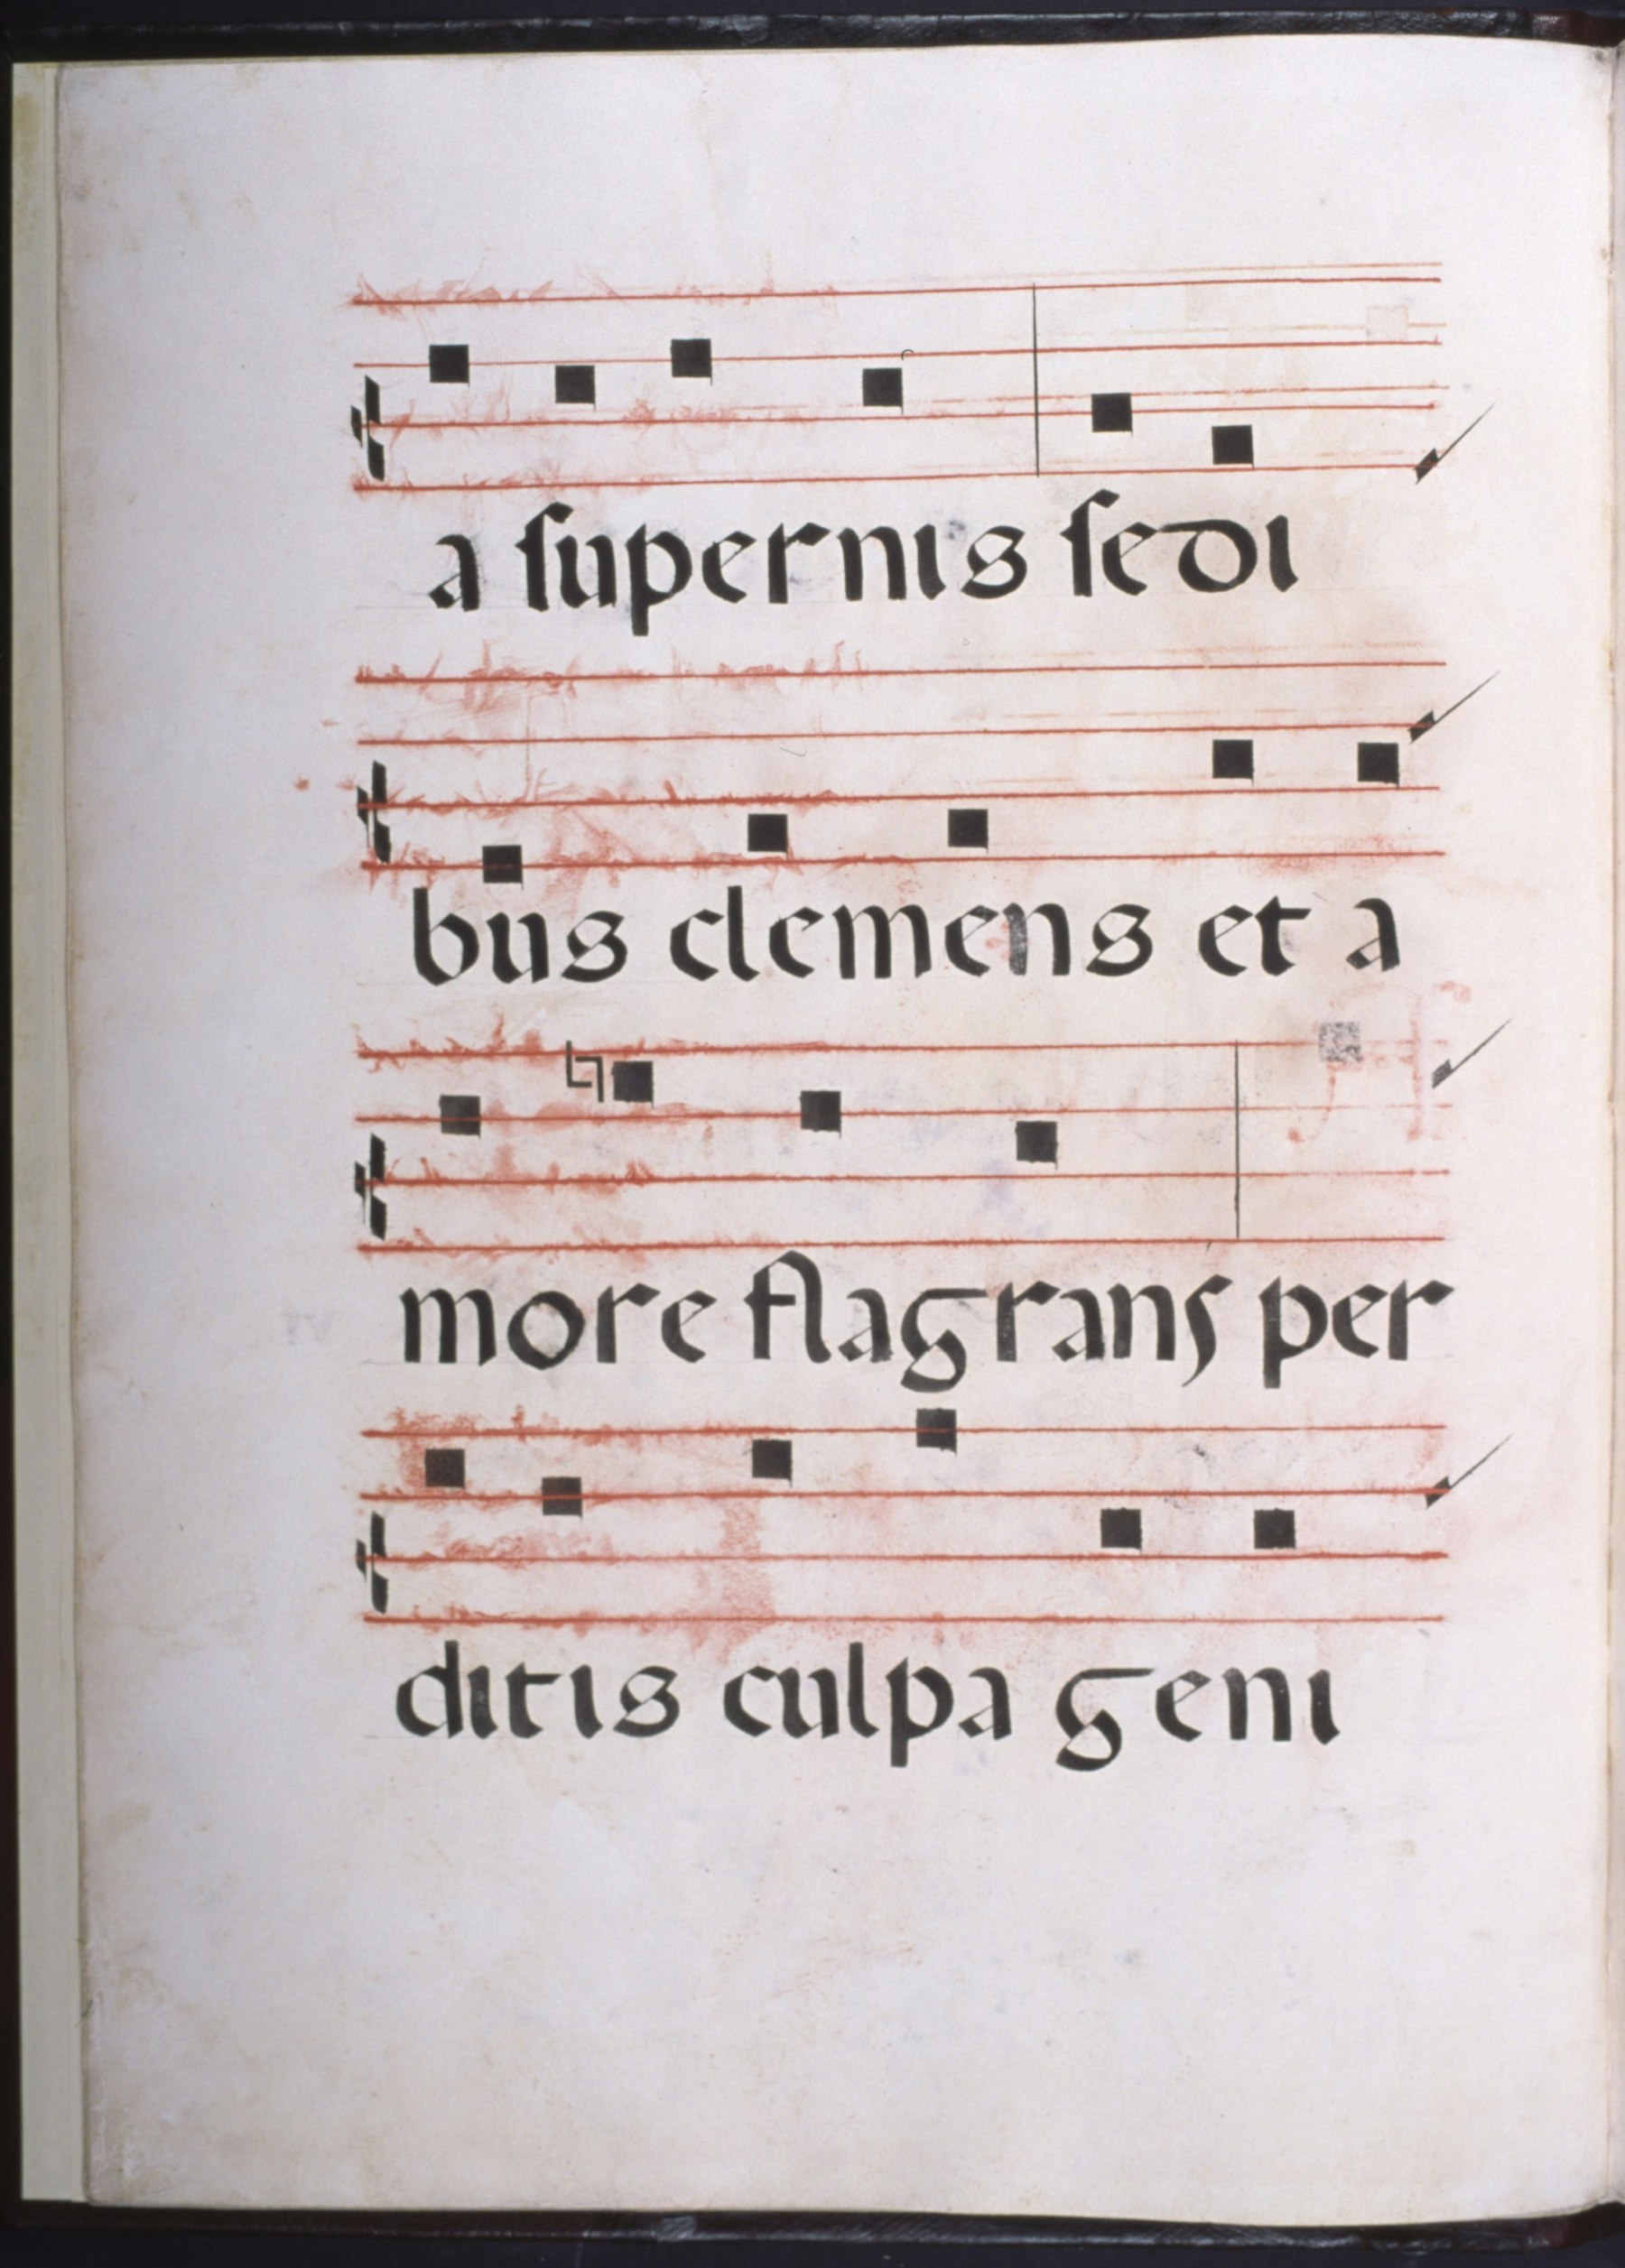 a ſupernis ſedi
bus clemens et a
more flagrans per
ditis culpa geni